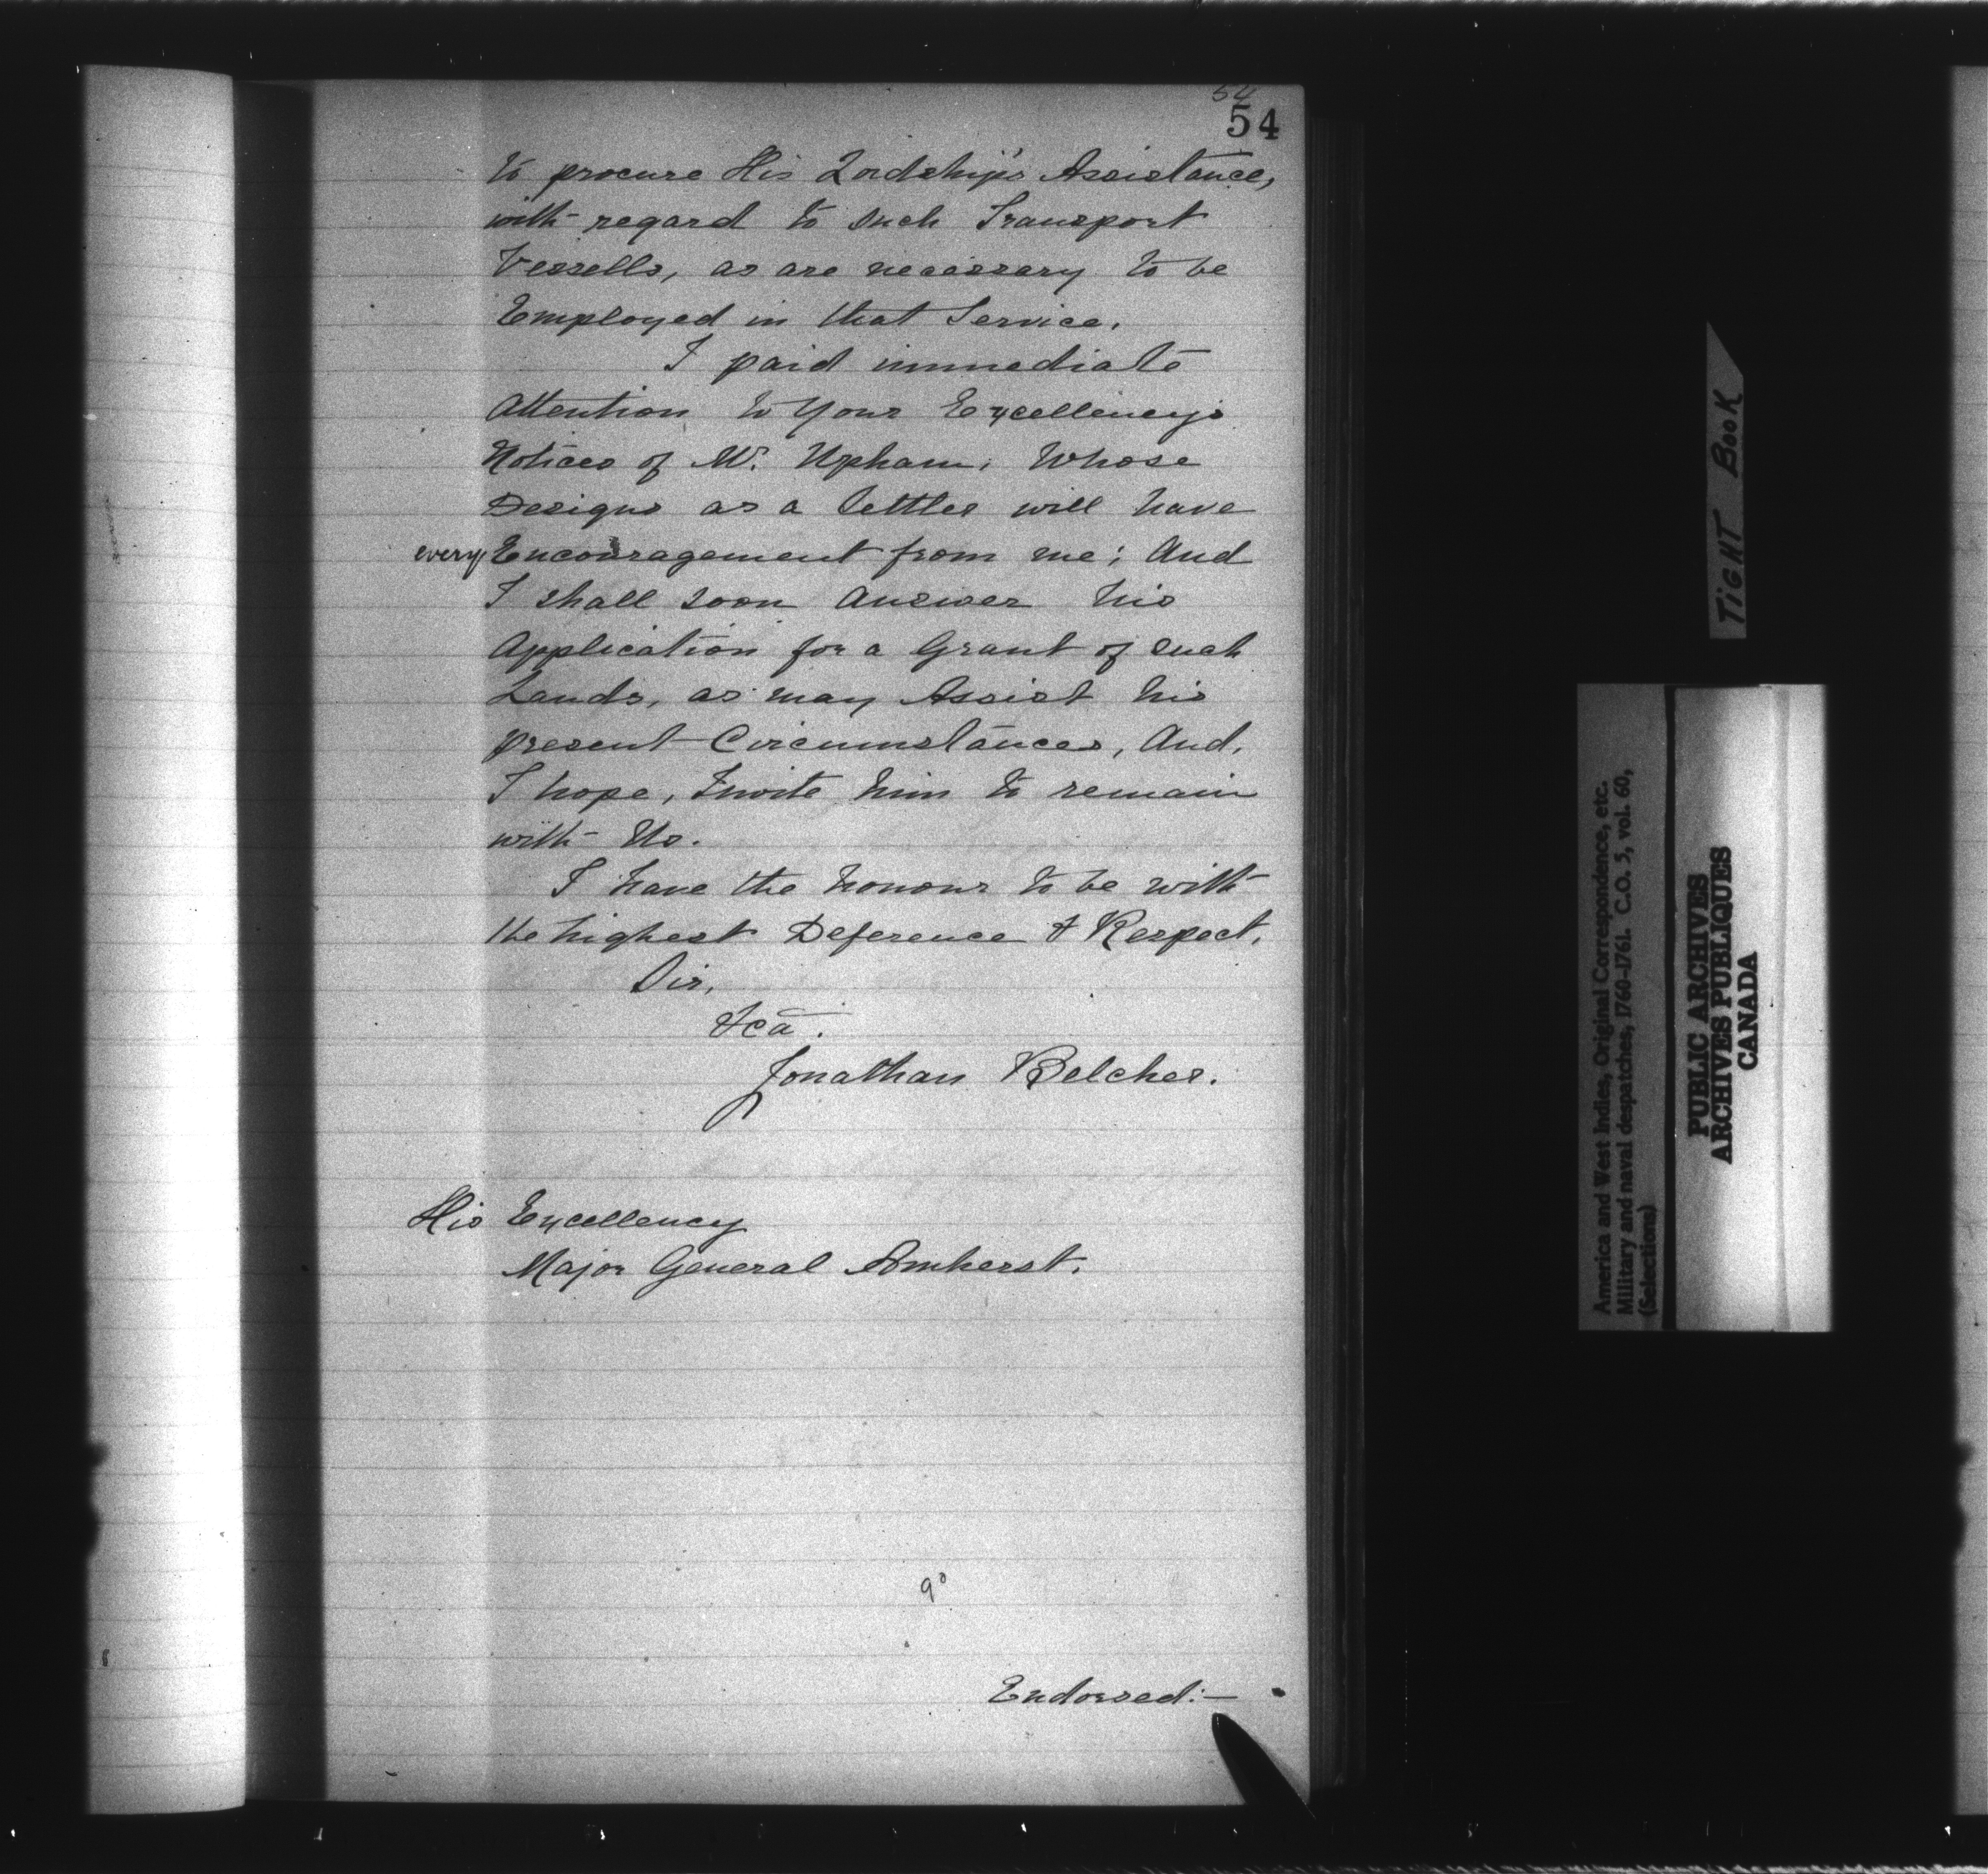 54
54
to procure His Lordship's Assistance,
with regard to such Transport
Vessells, as are necessary to be
Employed in that Service.
I paid immediate
Attention to Your Excellency's
Notices of Mr. Upham, Whose
Designs as a Settler will have
every Encouragement from me; And
I shall soon Answer his
Application for a Grant of such
Lands, as may Assist his
present Circumstances, And,
I hope, Invite him to remain
with Us.
I have the honour to be with
the highest Deference & Respect,
Sir,
&ca.
Jonathan Belcher.
His Excellency
Major General Amherst.
Endorsed:—
TIGHT BOOK
America and West Indies, Original Correspondence, etc.
Military and naval despatches, 1760-1761. C.O. 5, vol. 60,
(Selections)
PUBLIC ARCHIVES
ARCHIVES PUBLIQUES
CANADA